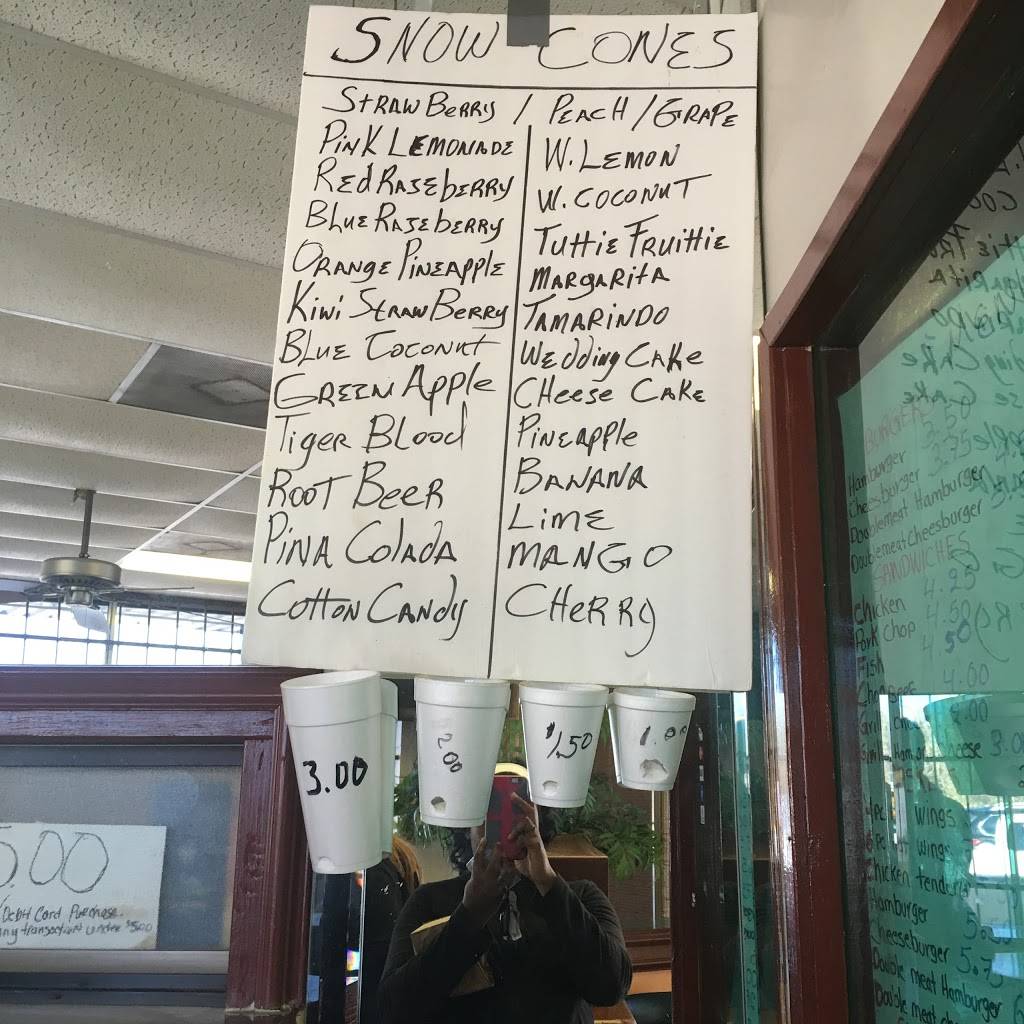 SNOW CONES
STRAWBERRY / PEACH / GRAPE
PINK LEMONADE
Red RASEbERRY
BLUE RASEbERRY
ORANGE PINEAPPLE
KIWI STRAWBERRY
BLUE COCONUT
GREEN APPLE
TIGER BLOOD
ROOT BEER
PINA COLADA
COTTON CANDY
W. LEMON
W. COCONUT
TUTTIE FRUITTIE
MARGARITA
TAMARINDO
WEDDING CAKE
CHEESE CAKE
PINEAPPLE
BANANA
LIME
MANGO
CHERRY
3.00
2.00
$1.50
1.00
5.00
Debit Card Purchase
any transaction under $5.00
BURGERS
Hamburger
Cheesburger
Doublemeat Hamburger
Doublemeat Cheesburger
SANDWICHES
4.25
chicken
4.50
Pork Chop
4.50
Fish
4.00
cheese 3.0
wings
wings
Chicken tenders
Hamburger
Cheeseburger 5.7
Double meat Hamburger
Double meat